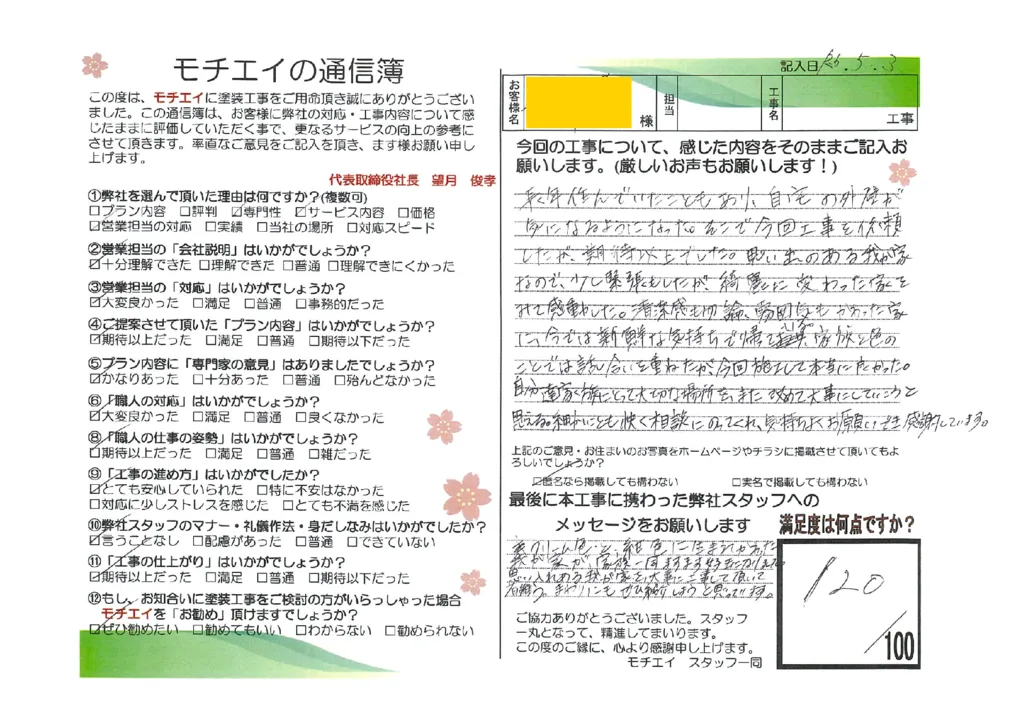 モチエイの通信簿
この度は、モチエイに塗装工事をご用命頂き誠にありがとうござい
ました。この通信簿は、お客様に弊社の対応・工事内容について感
じたままに評価していただく事で、更なるサービスの向上の参考に
させて頂きます。率直なご意見をご記入を頂き、ます様お願い申し
上げます。
代表取締役社長 望月 俊孝
①弊社を選んで頂いた理由は何ですか?(複数可)
□プラン内容 □評判 ☑専門性 ☑サービス内容 □価格
☑営業担当の対応 □実績 □当社の場所 □対応スピード
②営業担当の「会社説明」はいかがでしょうか?
☑十分理解できた □理解できた □普通 □理解できにくかった
③営業担当の「対応」はいかがでしょうか?
☑大変良かった □満足 □普通 □事務的だった
④ご提案させて頂いた「プラン内容」はいかがでしょうか?
☑期待以上だった □満足 □普通 □期待以下だった
⑤プラン内容に「専門家の意見」はありましたでしょうか?
☑かなりあった □十分あった □普通 □殆んどなかった
⑥「職人の対応」はいかがでしょうか?
☑大変良かった □満足 □普通 □良くなかった
⑧「職人の仕事の姿勢」はいかがでしょうか?
☑期待以上だった □満足 □普通 □雑だった
⑨「工事の進め方」はいかがでしたか?
☑とても安心していられた □特に不安はなかった
□対応に少しストレスを感じた □とても不満を感じた
⑩弊社スタッフのマナー・礼儀作法・身だしなみはいかがでしたか?
☑言うことなし □配慮があった □普通 □できていない
⑪「工事の仕上がり」はいかがでしょうか?
☑期待以上だった □満足 □普通 □期待以下だった
⑫もし、お知合いに塗装工事をご検討の方がいらっしゃった場合
モチエイを「お勧め」頂けますでしょうか?
☑ぜひ勧めたい □勧めてもいい □わからない □勧められない
記入日 R6.5.3
お客様名 様 担当 工事名 工事
今回の工事について、感じた内容をそのままご記入お
願いします。(厳しいお声もお願いします!)
長年住んでいたこともあり、自宅の外壁が
気になるようになった。そこで今回工事を依頼
したが、期待以上でした。思い出のある我が家
なので、少し緊張もしたが、綺麗に変わった家を
みて感動した。清潔感も勿論、雰囲気もかわった家
に、今では新鮮な気持ちで帰て 家族と色の
ことでは話し合いを重ねたが、今回施工して本当に良かった。
自分達家族にとって大切な場所を、また改めて大事にしていこうと
思える。細かいことも快く相談にのってくれ、気持ちよくお願いでき感謝しています。
上記のご意見・お住まいのお写真をホームページやチラシに掲載させて頂いてもよ
ろしいでしょうか?
☑匿名なら掲載しても構わない □実名で掲載しても構わない
最後に本工事に携わった弊社スタッフへの
メッセージをお願いします
色と、紺色に生まれかわった
我が家が、家族一同ますます好きになりました
思い入れある我が家を大事に工事して頂いて
有難う。まわりにもぜひ紹介しようと思ってます。
ご協力ありがとうございました。スタッフ
一丸となって、精進してまいります。
この度のご縁に、心より感謝申し上げます。
モチエイ スタッフ一同
満足度は何点ですか?
120
/100